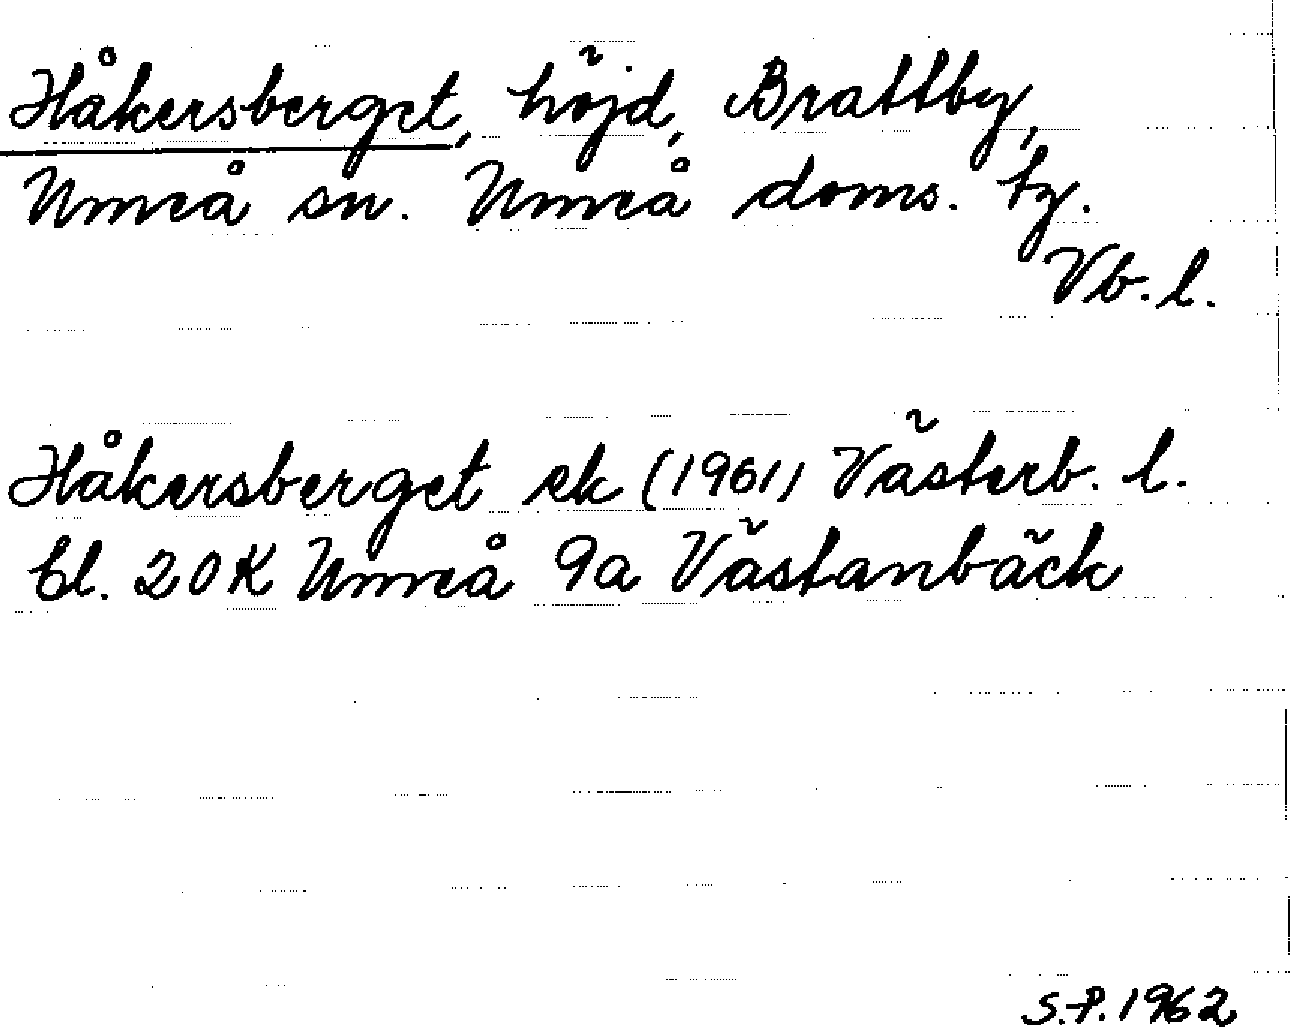 Håkersberget, höjd, Brattby,
Umeå sn. Umeå doms. tg.
Vb. l.
Håkersberget ek (1961) Västerb. l.
bl. 20K Umeå 9a Västanbäck
S.P. 1962